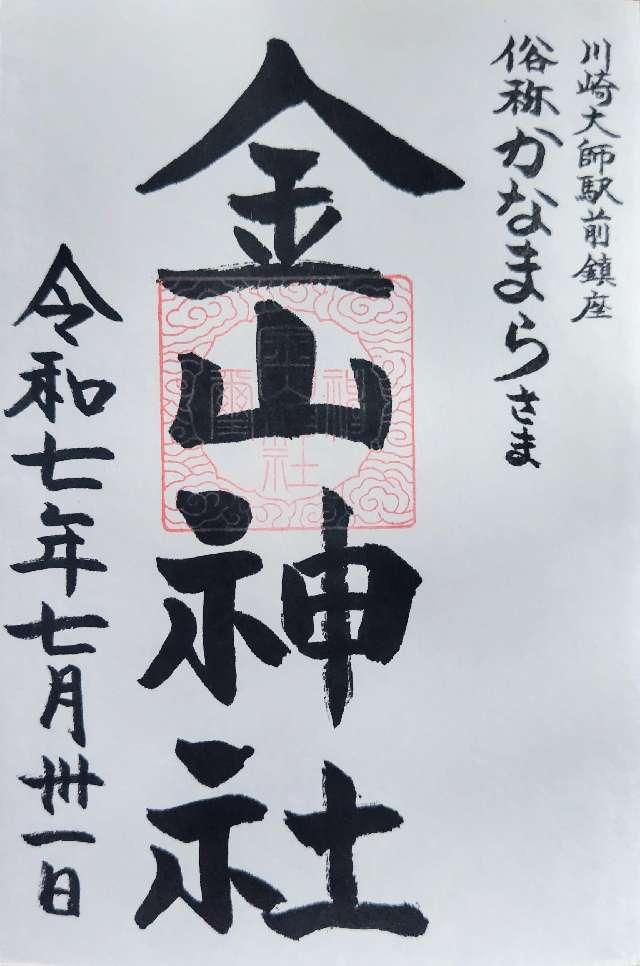 川崎大師駅前鎮座
俗称かなまらさま
金山神社
令和七年七月卅一日